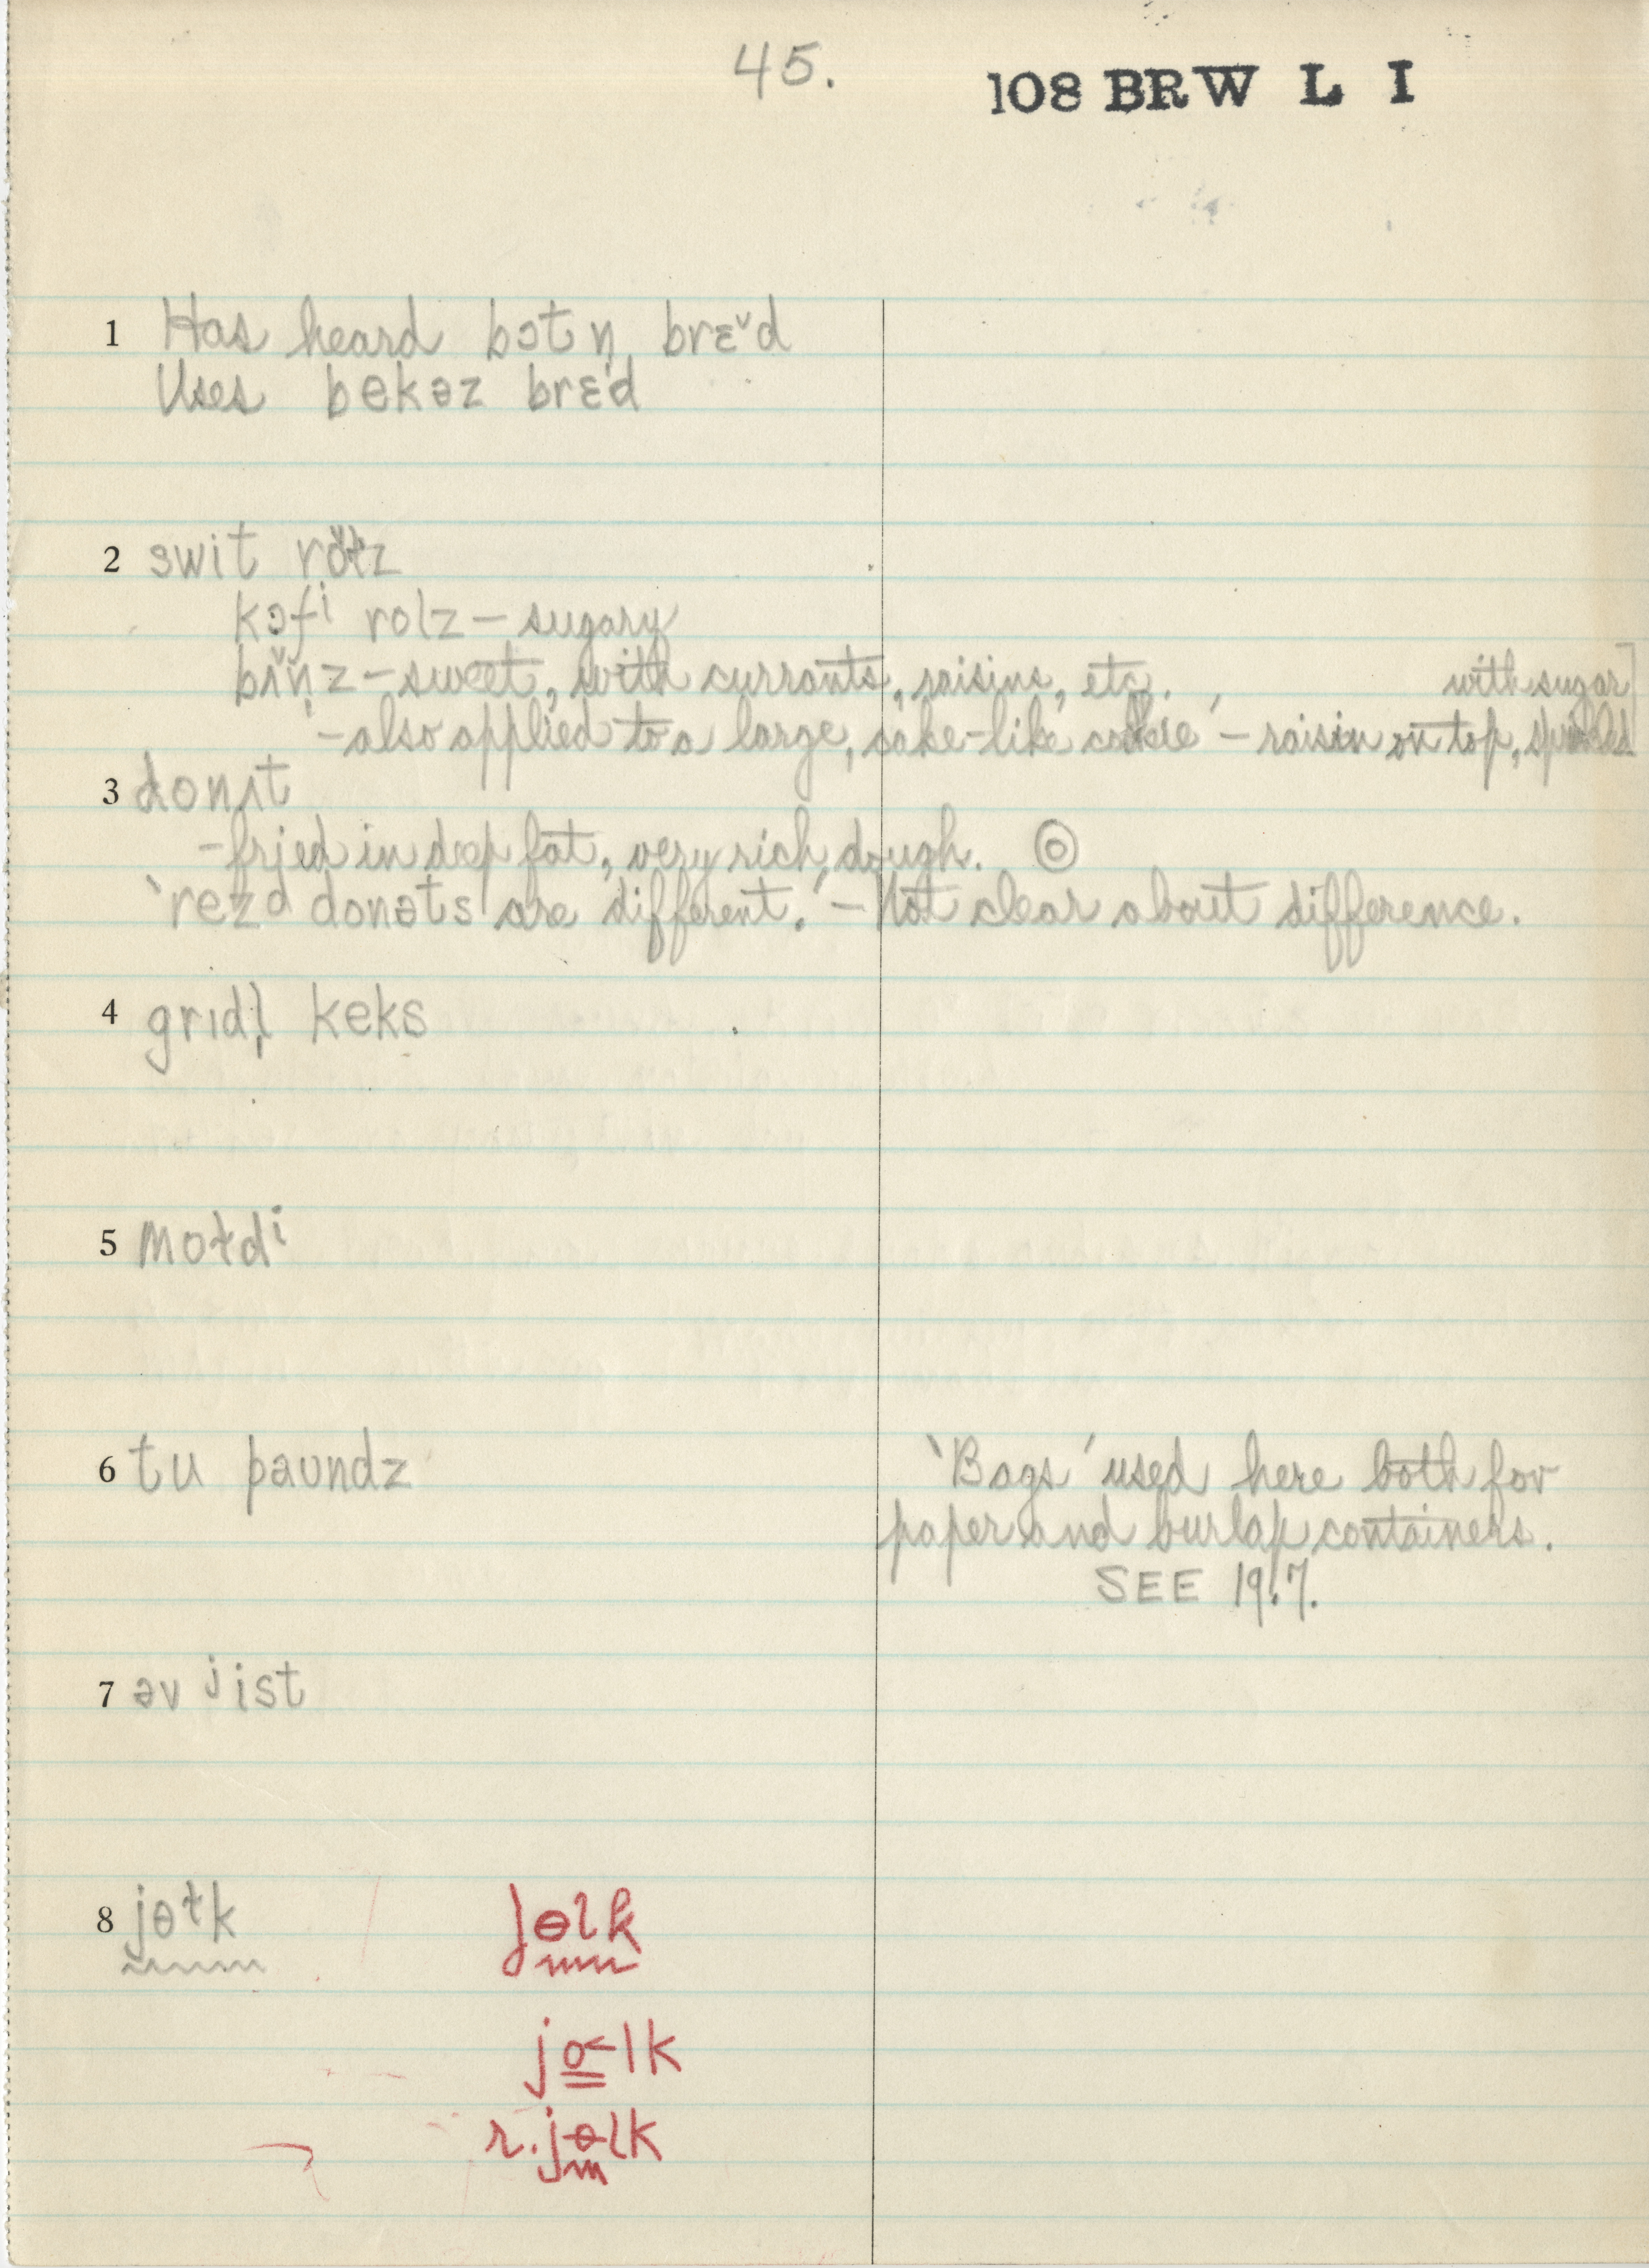 45.
108 BRW L I
1 Has heard bɔt n̩ brɛˇd
Uses bekəz brɛd
2 swit
kɔfⁱ rolz – sugary
– sweet, with currants, raisins, etc.
with sugar]
– also applied to a large, cake-like cookie' – raisin on top,
3 donɪt
– fried in deep fat, very rich dough. ◎
'rezᵈ donəts are different.' – Not clear about difference.
4 grɪdl̩ keks
5 moɫdⁱ
6 tu paundz
'Bags' used here both for
paper and burlap containers.
SEE 19.7.
7 əv ʲist
8 jɵɫk
jɵlk
jo˂lk
r. jɵlk